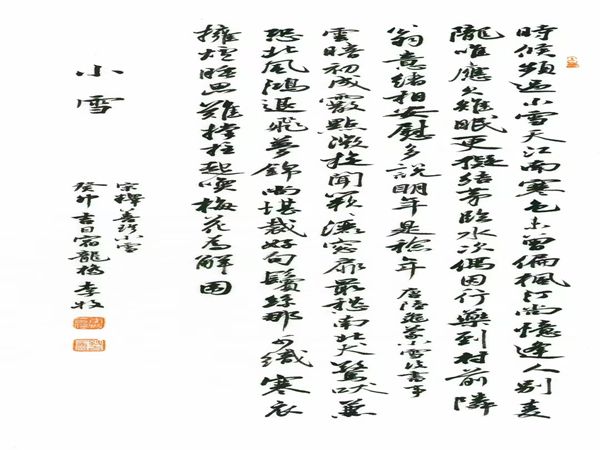 時候頻過小雪天江南寒色未曾偏楓汀尚憶逢人別麦
隴唯應欠雉眠更擬結茅臨水次偶因行藥到村前隣
翁意緒相安慰多說明年是稔年 唐陸龜蒙小雪後書事
雲暗初成霰點微旋聞簌簌灑窓扉最愁南北犬驚吠兼
恐北風鴻退飛夢錦尚堪裁好句鬢絲那可織寒衣
擁爐睡思難撐拄起喚梅花為解圍
小雪
宋釋善珍小雪
癸卯吉日宿龍橋李牧